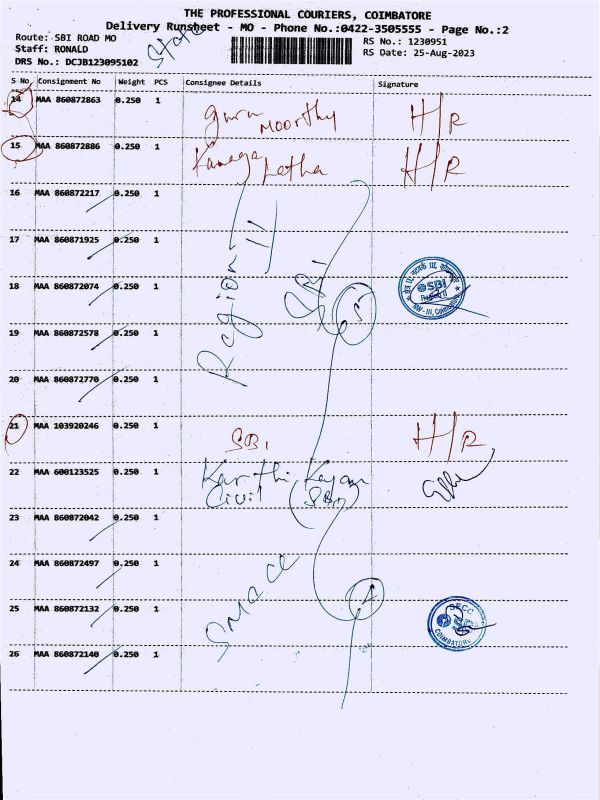 THE PROFESSIONAL COURIERS, COIMBATORE
Delivery Runsheet - MO - Phone No.:0422-3505555 - Page No.:2
Route: SBI ROAD MO
RS No.: 1230951
Staff: RONALD
RS Date: 25-Aug-2023
DRS No.: DCJB123095102
S No Consignment No Weight PCS Consignee Details Signature
14 MAA 860872863 0.250 1 guru moorthy H/R
15 MAA 860872886 0.250 1 Kanaga Letha H/R
16 MAA 860872217 0.250 1
17 MAA 860871925 0.250 1
Region II SBI
18 MAA 860872074 0.250 1
SBI
19 MAA 860872578 0.250 1
20 MAA 860872770 0.250 1
21 MAA 103920246 0.250 1 SBI H/R
22 MAA 600123525 0.250 1
Civil
23 MAA 860872042 0.250 1
24 MAA 860872497 0.250 1
25 MAA 860872132 0.250 1
SBI
COIMBATORE
26 MAA 860872140 0.250 1